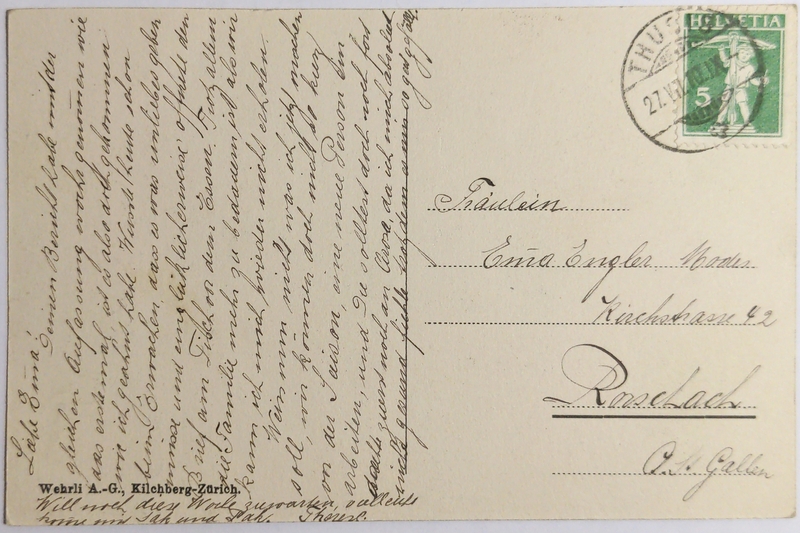 Liebe Emã!
Deinen Bericht habe mit der
gleichen Auffassung wahrgenomen wie
das erste mal, ist es also doch gekommen
wie ich geahnt habe. Wusst heute schon
beim Erwachen, dass es was unliebes geben
musse und unglücklicherweise öffnete den
Brief am Tisch vor dem Essen. Trotz allem
die Familie mehr zu bedauern ist als wir
kann ich mich wieder nicht erholen.
Weiss nun nichts was ich jetzt machen
soll, wir können doch nicht so kurz
vor der Saison eine neue Person
arbeiten, und Du solltest doch noch fort
dachte zuerst noch an Arosa, da ich mich absolut
nicht gesund fühle
Will noch diese Woche zuwarten, vielleicht
kome mit Sak und Pak. Theresl.
Wehrli A.-G., Kilchberg-Zürich.
HELVETIA
5
THUSIS
Fräulein
Emã Engler Modes
Kirchstrasse 42
Rorschach
Ct. St Gallen